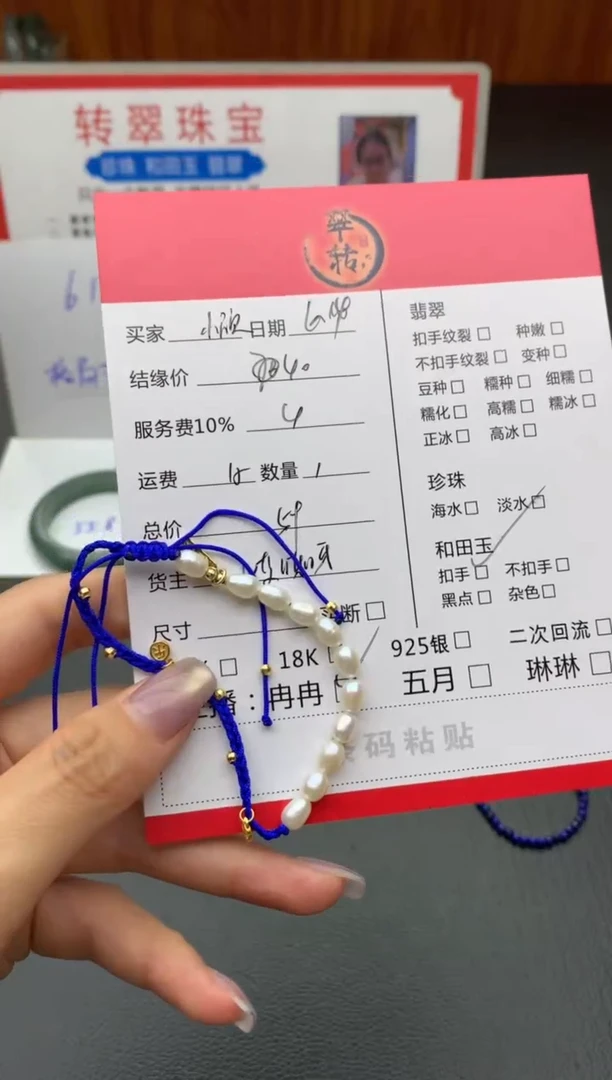 转翠珠宝
珍珠 和田玉 翡翠
翠转
买家 小欣 日期 6.18
结缘价 40
服务费10% 4
运费 15 数量 1
总价 59
货主
尺寸
买断
18K
925银
二次回流
主播：冉冉
五月
琳琳
条码粘贴
翡翠
扣手纹裂 种嫩
不扣手纹裂 变种
豆种 糯种 细糯
糯化 高糯 糯冰
正冰 高冰
珍珠
海水 淡水
和田玉
扣手 不扣手
黑点 杂色